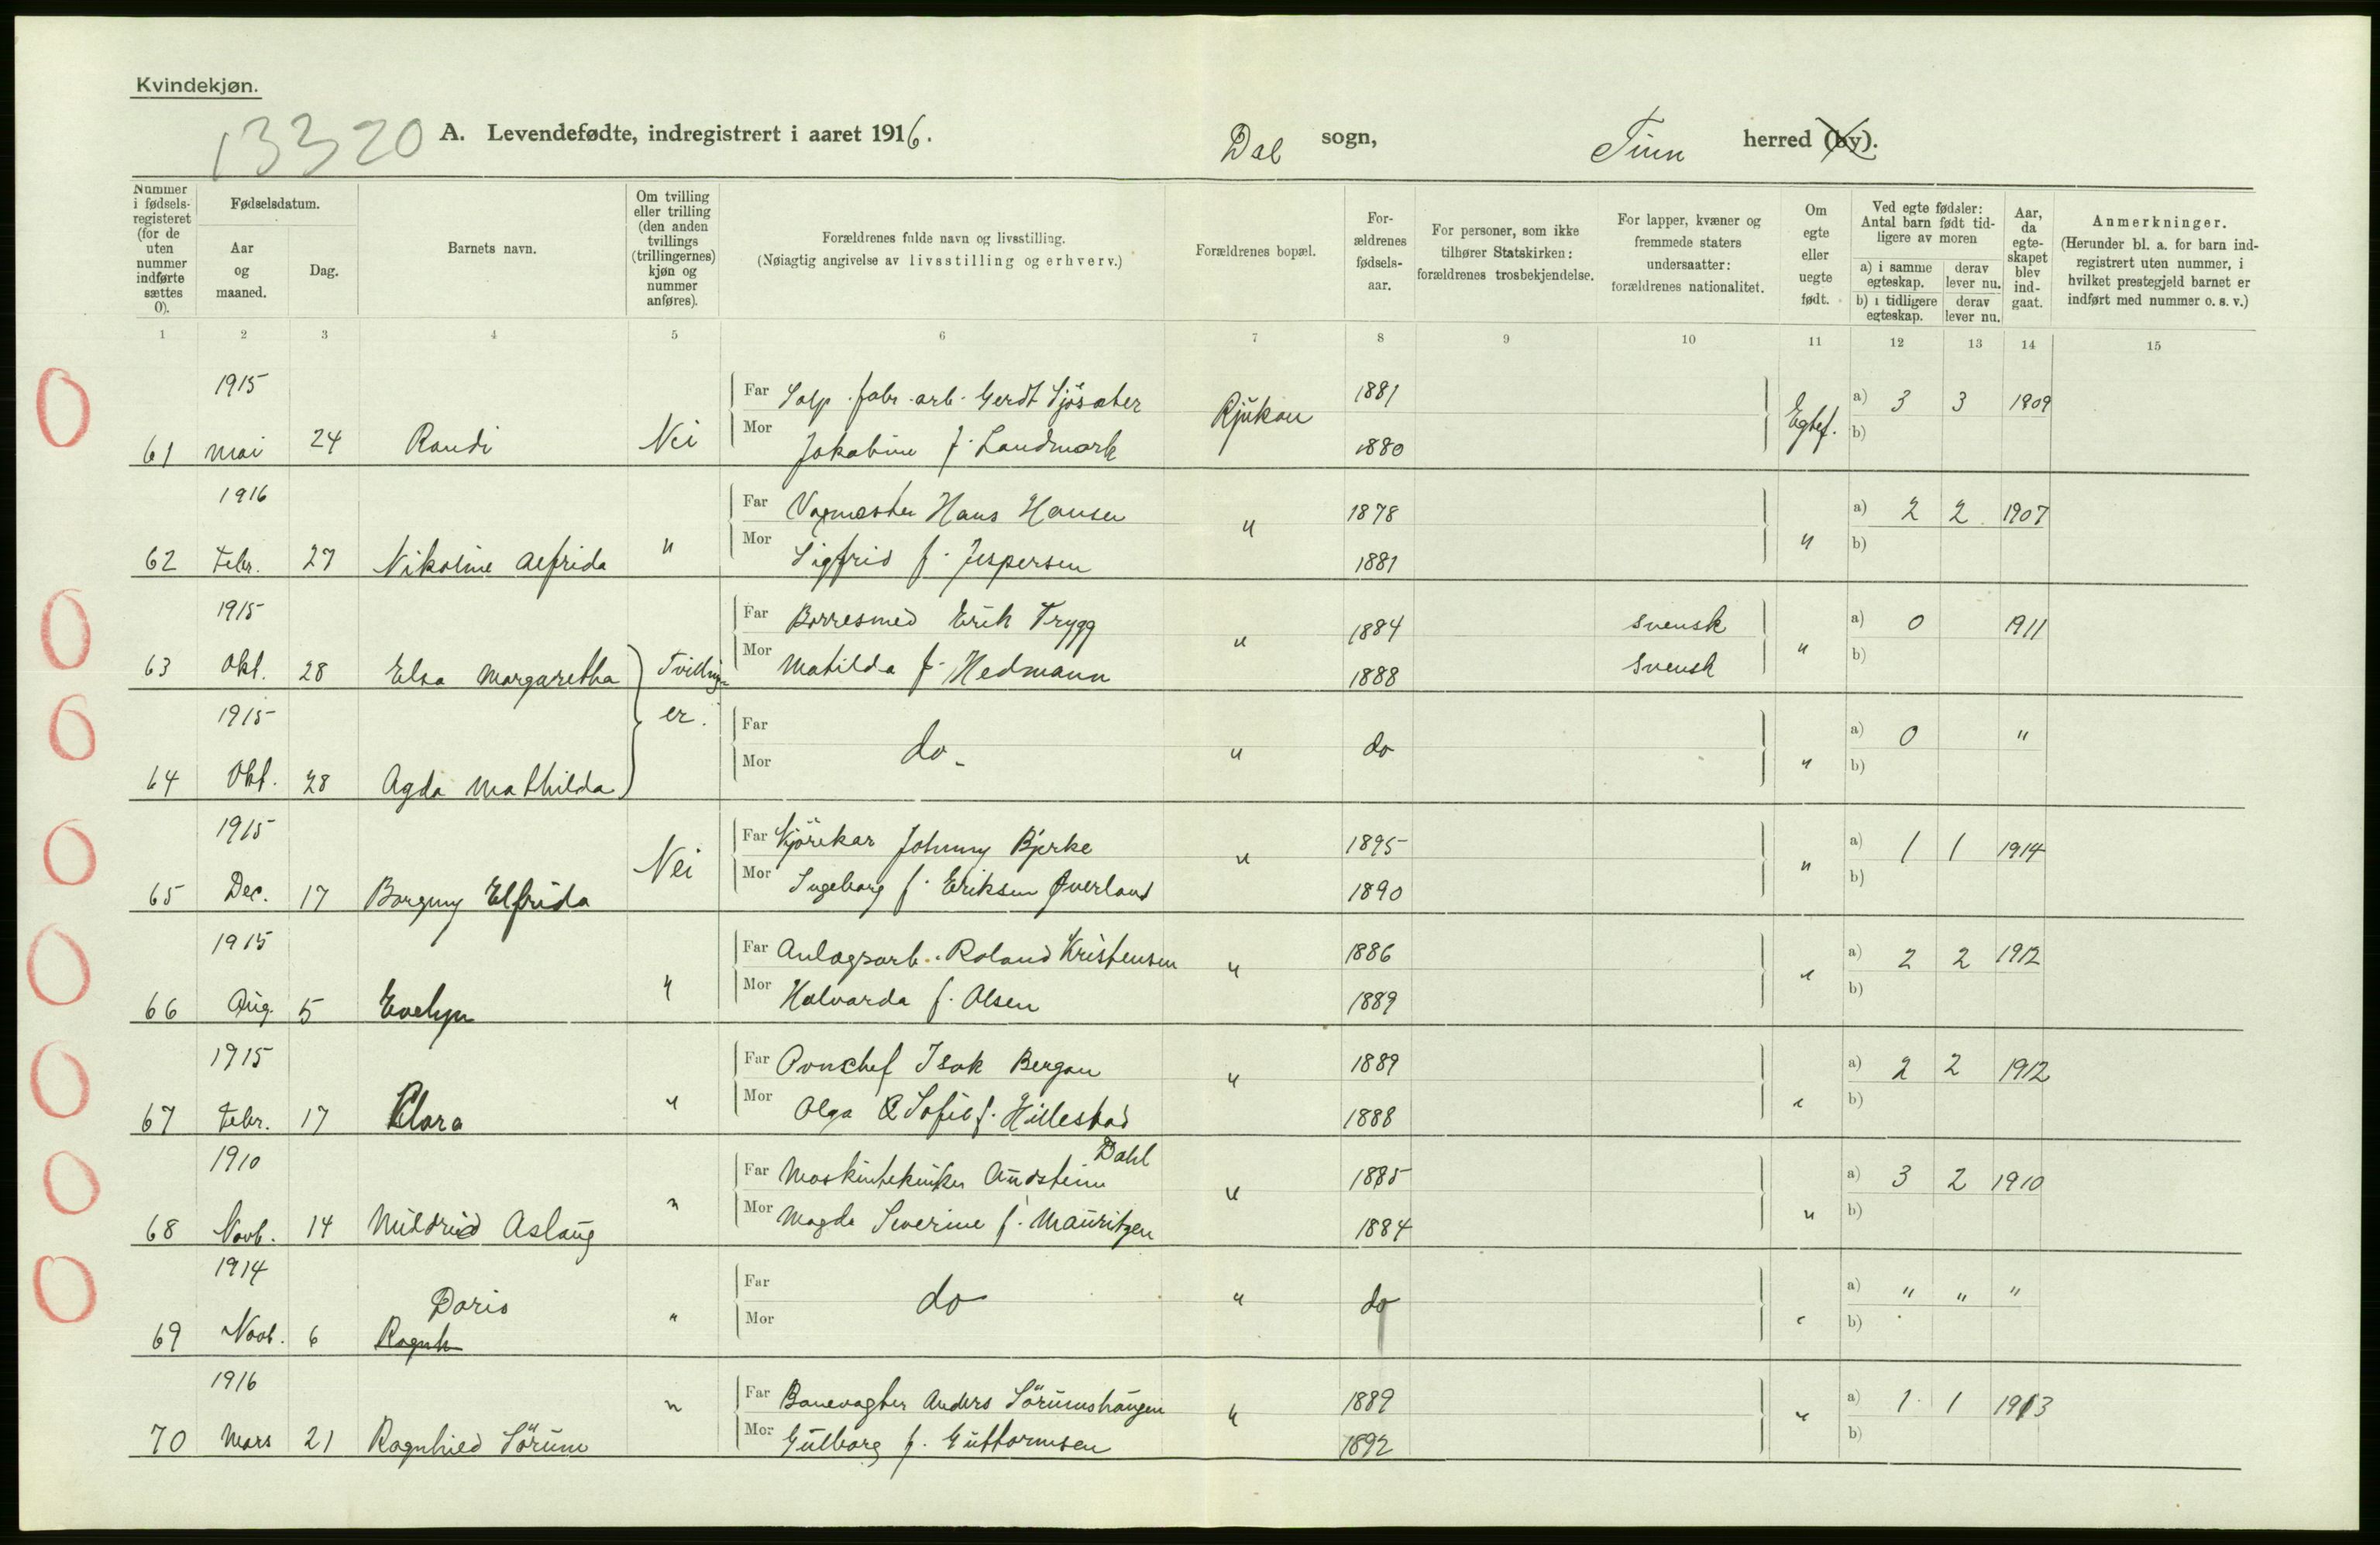 Kvindekjøn.
13320 A. Levendefødte, indregistrert i aaret 1916. Dal sogn, Tinn herred (by).
Nummer i fødsels-registeret (for de uten nummer indførte sættes 0).
Fødselsdatum.
Aar og maaned.
Dag.
Barnets navn.
Om tvilling eller trilling (den anden tvillings (trillingernes) kjøn og nummer anføres).
Forældrenes fulde navn og livsstilling.
(Nøiagtig angivelse av livsstilling og erhverv.)
Forældrenes bopæl.
For-ældrenes fødsels-aar.
For personer, som ikke tilhører Statskirken: forældrenes trosbekjendelse.
For lapper, kvæner og fremmede staters undersaatter: forældrenes nationalitet.
Om egte eller uegte født.
Ved egte fødsler: Antal barn født tid-ligere av moren
a) i samme egteskap. derav lever nu.
b) i tidligere egteskap. derav lever nu.
Aar, da egte-skapet blev ind-gaat.
Anmerkninger.
(Herunder bl. a. for barn ind-registrert uten nummer, i hvilket prestegjeld barnet er indført med nummer o. s. v.)
1 2 3 4 5 6 7 8 9 10 11 12 13 14 15
0 1915 Far Salp. fabr. arb. Gerdt Sjösæter Rjukan 1881 Egtef. a) 3 3 1909
61 Mai 24 Randi Nei Mor Jakobine f. Landmark 1880 b)
1916 Far Vognmester Hans Hansen " 1878 " a) 2 2 1907
62 Febr. 27 Nikoline Alfrida " Mor Sigfrid f. Jespersen 1881 b)
0 1915 Far Borresmed Erik Trygg " 1884 svensk " a) 0 1911
63 Okt. 28 Elsa Margaretha Tvillinger. Mor Matilda f. Hedmann 1888 svensk b)
0 1915 Far do " do " a) 0 "
64 Okt. 28 Agda Mathilda Mor b)
0 1915 Far Kjörekar Johnny Bjerke " 1895 " a) 1 1 1914
65 Dec. 17 Borgny Elfrida Nei Mor Ingeborg f. Eriksen Överland 1890 b)
0 1915 Far Anlægsarb. Roland Kristensen " 1886 " a) 2 2 1912
66 Aug. 5 Evelyn " Mor Halvarda f. Olsen 1889 b)
0 1915 Far Ovnschef Isak Bergan " 1889 " a) 2 2 1912
67 Febr. 17 Klara " Mor Olga Sofie f. Hillestad 1888 b)
0 1910 Far Maskintekniker Audstein Dahl " 1885 " a) 3 2 1910
68 Novb. 14 Mildrid Aslaug " Mor Magda Severine f. Mauritzen 1884 b)
0 1914 Doris Far do " do " a) " " "
69 Novb. 6 Ragnh " Mor b)
1916 Far Banevagter Anders Sörumshaugen " 1889 " a) 1 1 1913
70 Mars 21 Ragnhild Sörum " Mor Gulborg f. Guttormsen 1892 b)